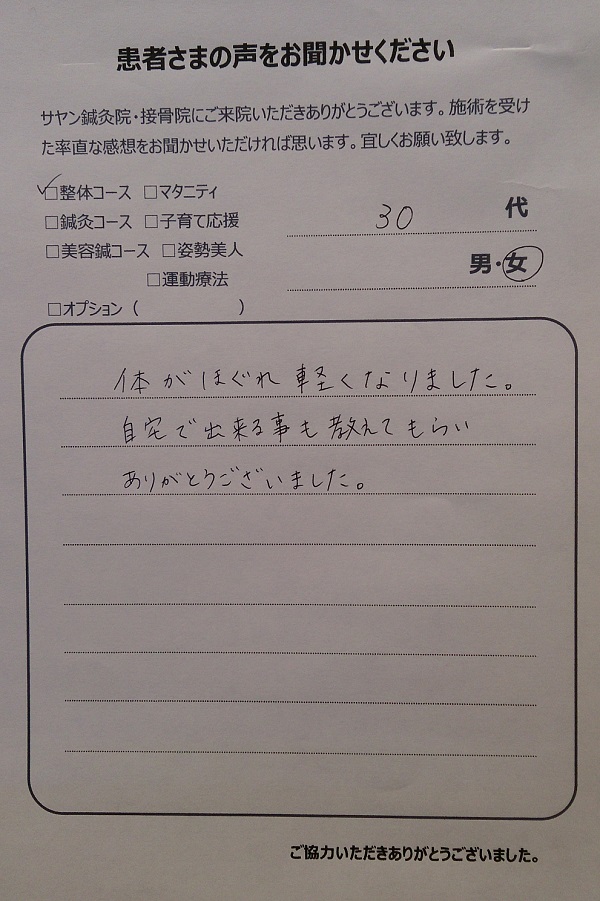 患者さまの声をお聞かせください
サヤン鍼灸院・接骨院にご来院いただきありがとうございます。施術を受け
た率直な感想をお聞かせいただければ思います。宜しくお願い致します。
☑整体コース □マタニティ
□鍼灸コース □子育て応援
30 代
□美容鍼コース □姿勢美人
男・女
□運動療法
□オプション（ ）
体がほぐれ軽くなりました。
自宅で出来る事も教えてもらい
ありがとうございました。
ご協力いただきありがとうございました。